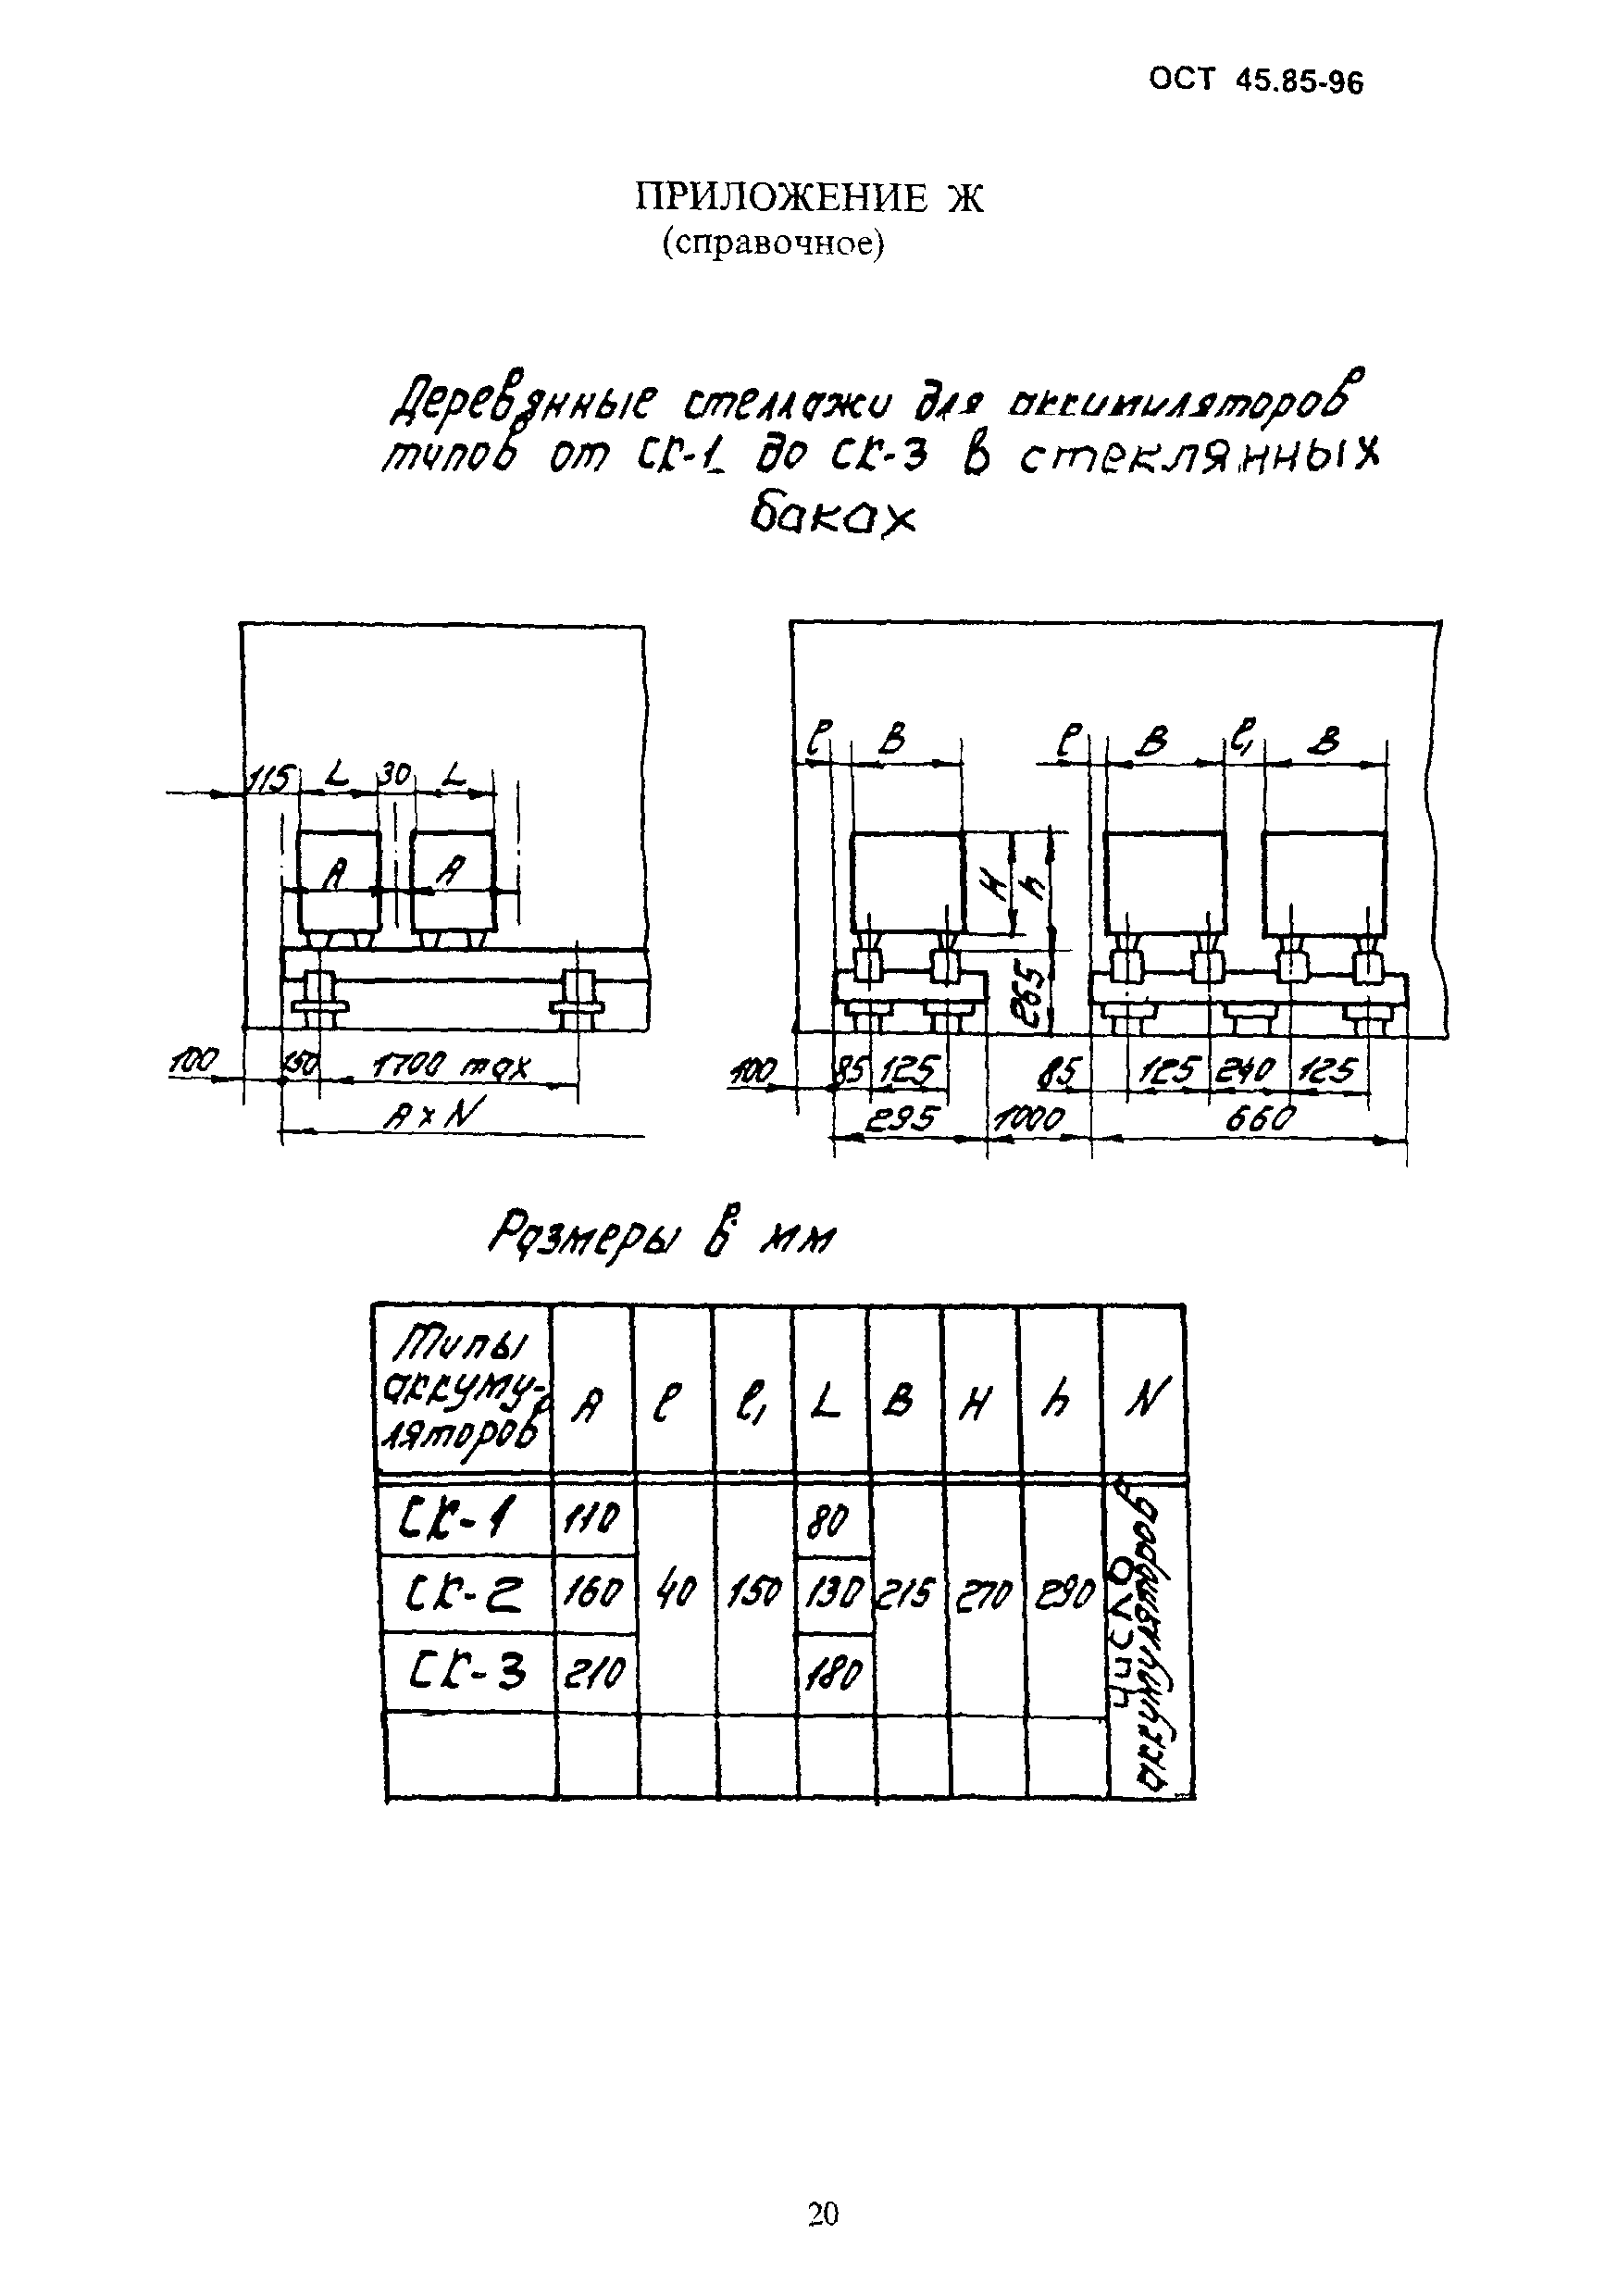 ОСТ 45.85-96
ПРИЛОЖЕНИЕ Ж
(справочное)
Деревянные стеллажи для аккумуляторов
типов от СК-1 до СК-3 в стеклянных
баках
115 L 30 L
A A
100 150 1700 max
A x N
l B l B l₁ B
H h
265
100 85 125 85 125 240 125
295 1000 660
Размеры в мм
Типы
аккуму-
ляторов A l l₁ L B H h N
СК-1 110 80
СК-2 160 40 150 130 215 270 290
СК-3 210 180
Число
аккумуляторов
20